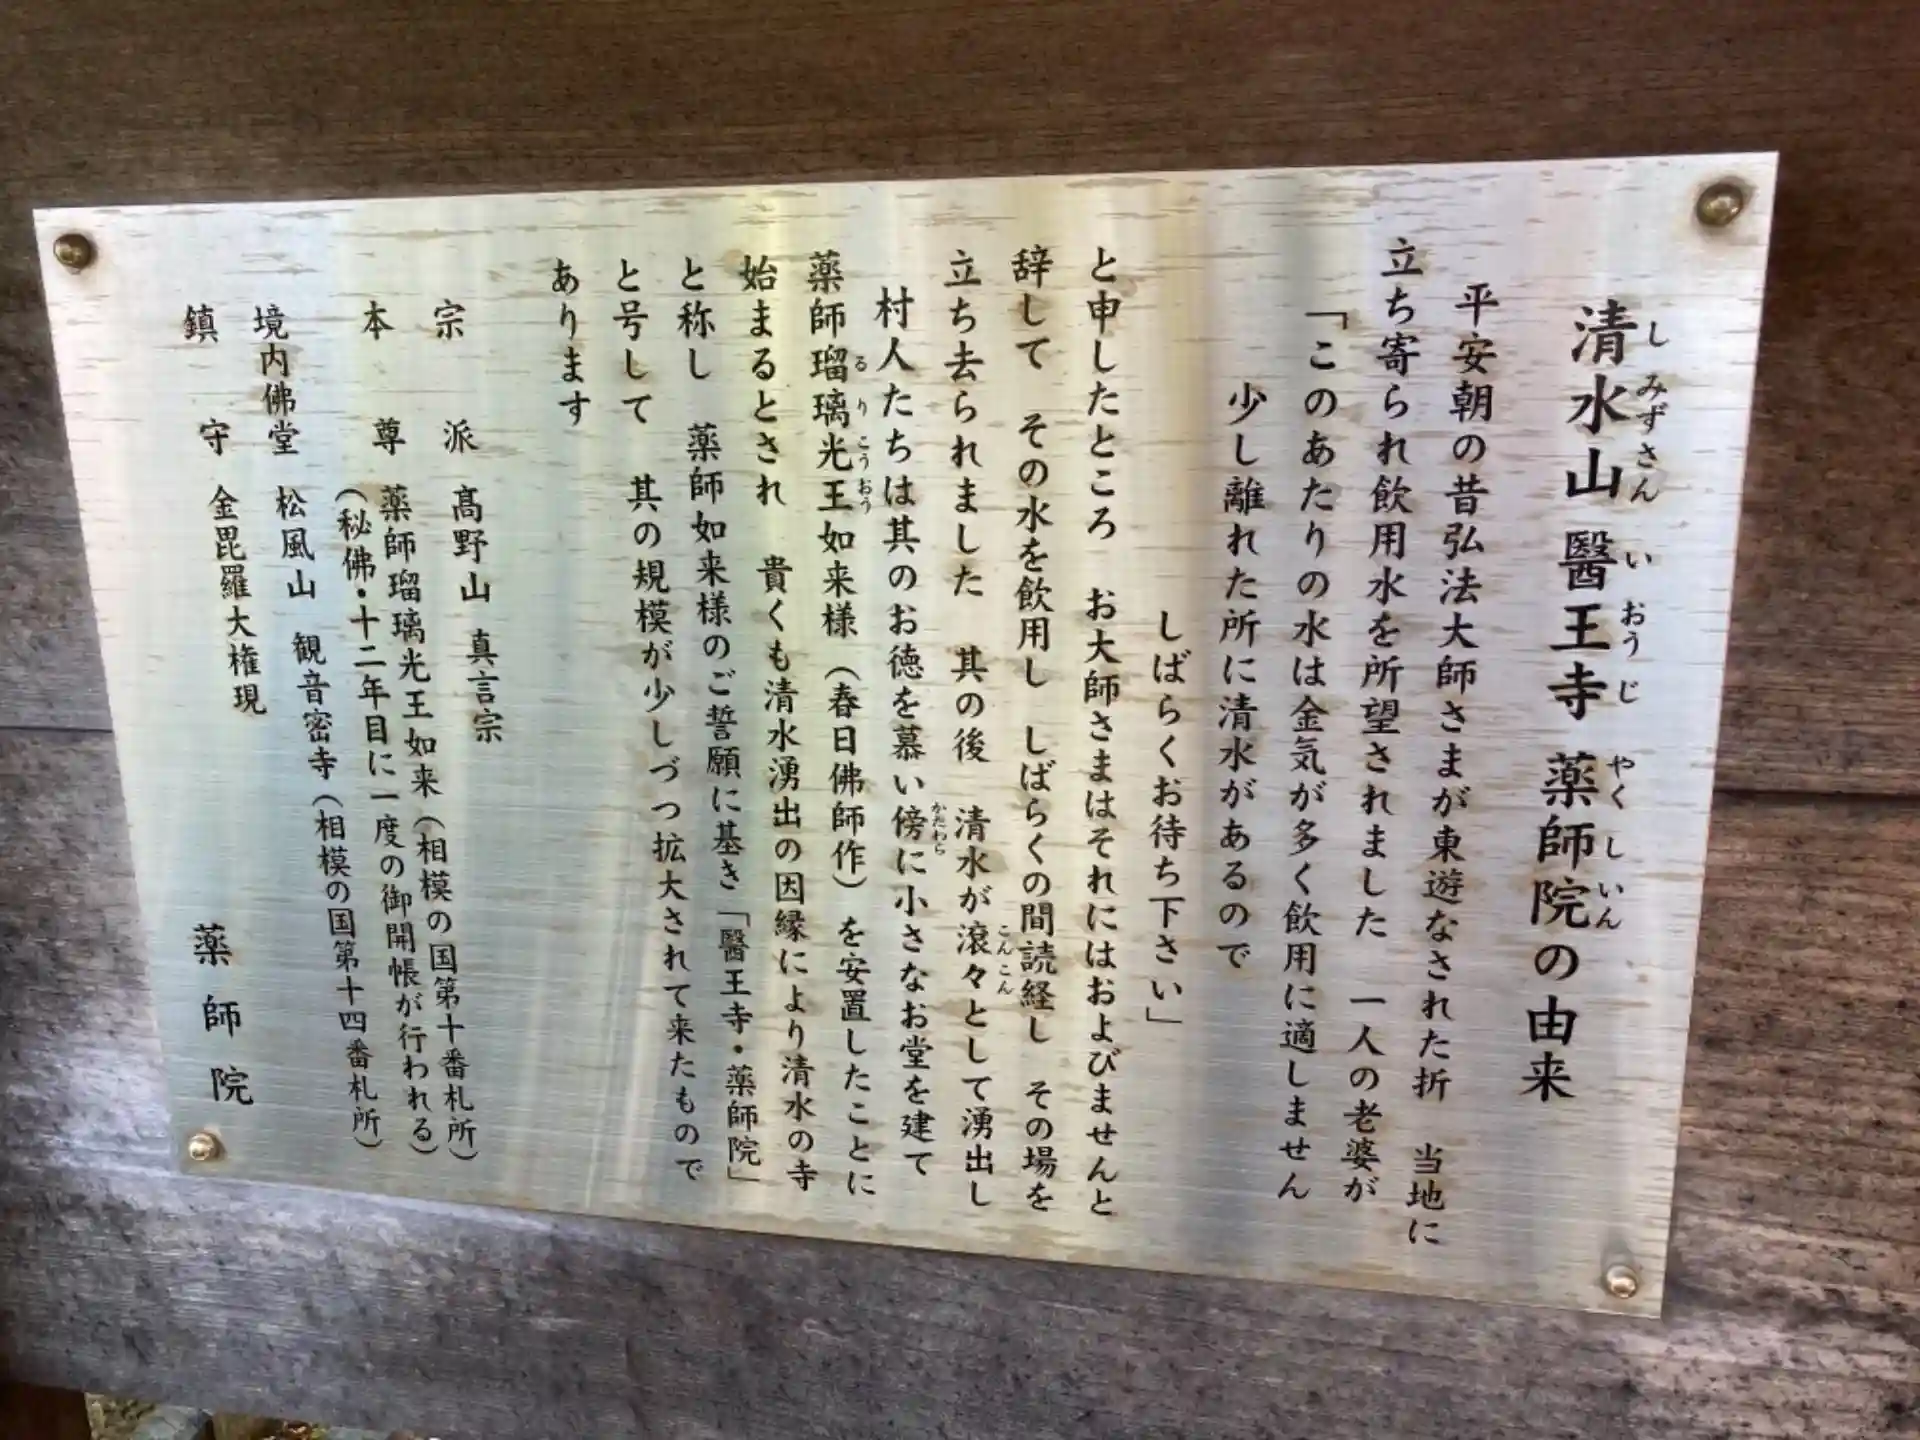 清水山醫王寺薬師院の由来
しみずさん いおうじ やくしいん
平安朝の昔弘法大師さまが東遊なされた折 当地に
立ち寄られ飲用水を所望されました 一人の老婆が
「このあたりの水は金気が多く飲用に適しません
少し離れた所に清水があるので
しばらくお待ち下さい」
と申したところ お大師さまはそれにはおよびませんと
辞して その水を飲用し しばらくの間読経し その場を
立ち去られました 其の後 清水が滾々として湧出し
こんこん
村人たちは其のお徳を慕い傍に小さなお堂を建て
かたわら
薬師瑠璃光王如来様(春日佛師作)を安置したことに
るりこうおう
始まるとされ 貴くも清水湧出の因縁により清水の寺
と称し 薬師如来様のご誓願に基き「醫王寺・薬師院」
と号して 其の規模が少しづつ拡大されて来たもので
あります
宗派 髙野山 真言宗
本尊 薬師瑠璃光王如来(相模の国第十番札所)
(秘佛・十二年目に一度の御開帳が行われる)
境内佛堂 松風山 観音密寺(相模の国第十四番札所)
鎮守 金毘羅大権現
薬師院